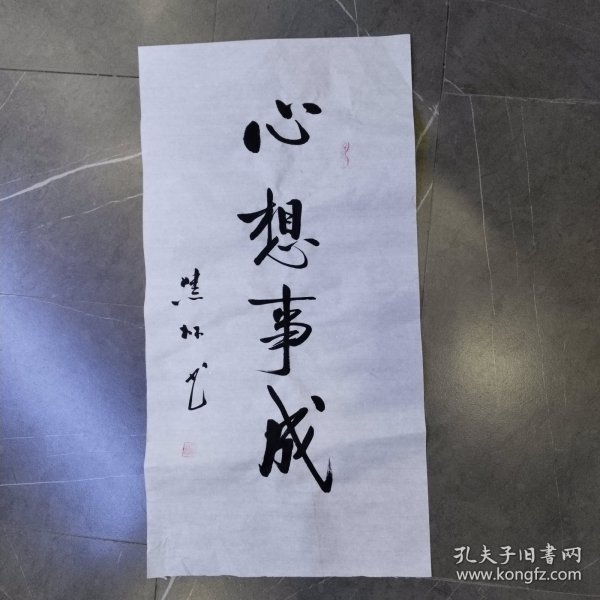 心想事成
孔夫子旧書网
www.kongfz.com